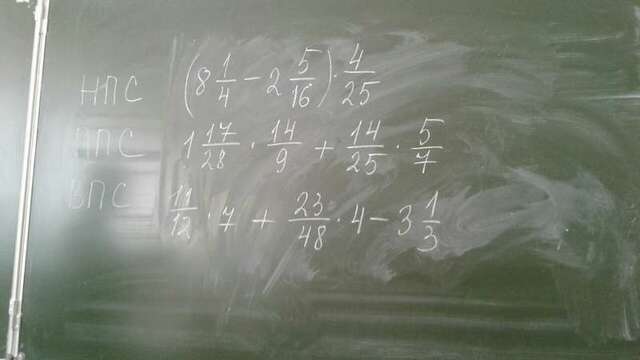 НПС (8 1/4 - 2 5/16) · 4/25
ППС 1 17/28 · 14/9 + 14/25 · 5/7
ВПС 11/12 · 7 + 23/48 · 4 - 3 1/3